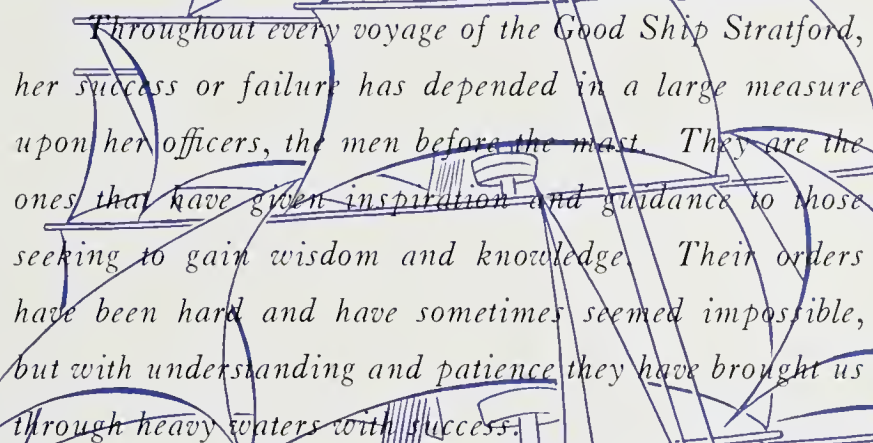 Throughout every voyage of the Good Ship Stratford,
her success or failure has depended in a large measure
upon her officers, the men before the mast. They are the
ones that have given inspiration and guidance to those
seeking to gain wisdom and knowledge. Their orders
have been hard and have sometimes seemed impossible,
but with understanding and patience they have brought us
through heavy waters with success.